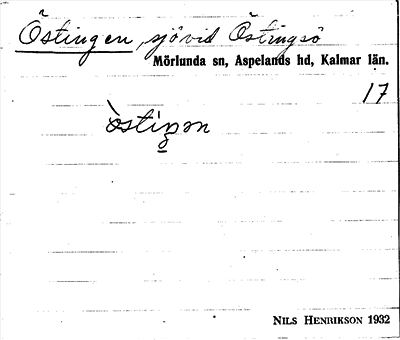 Östingen, sjö vid Östingsö
Mörlunda sn, Aspelands hd, Kalmar län.
17
NILS HENRIKSON 1932